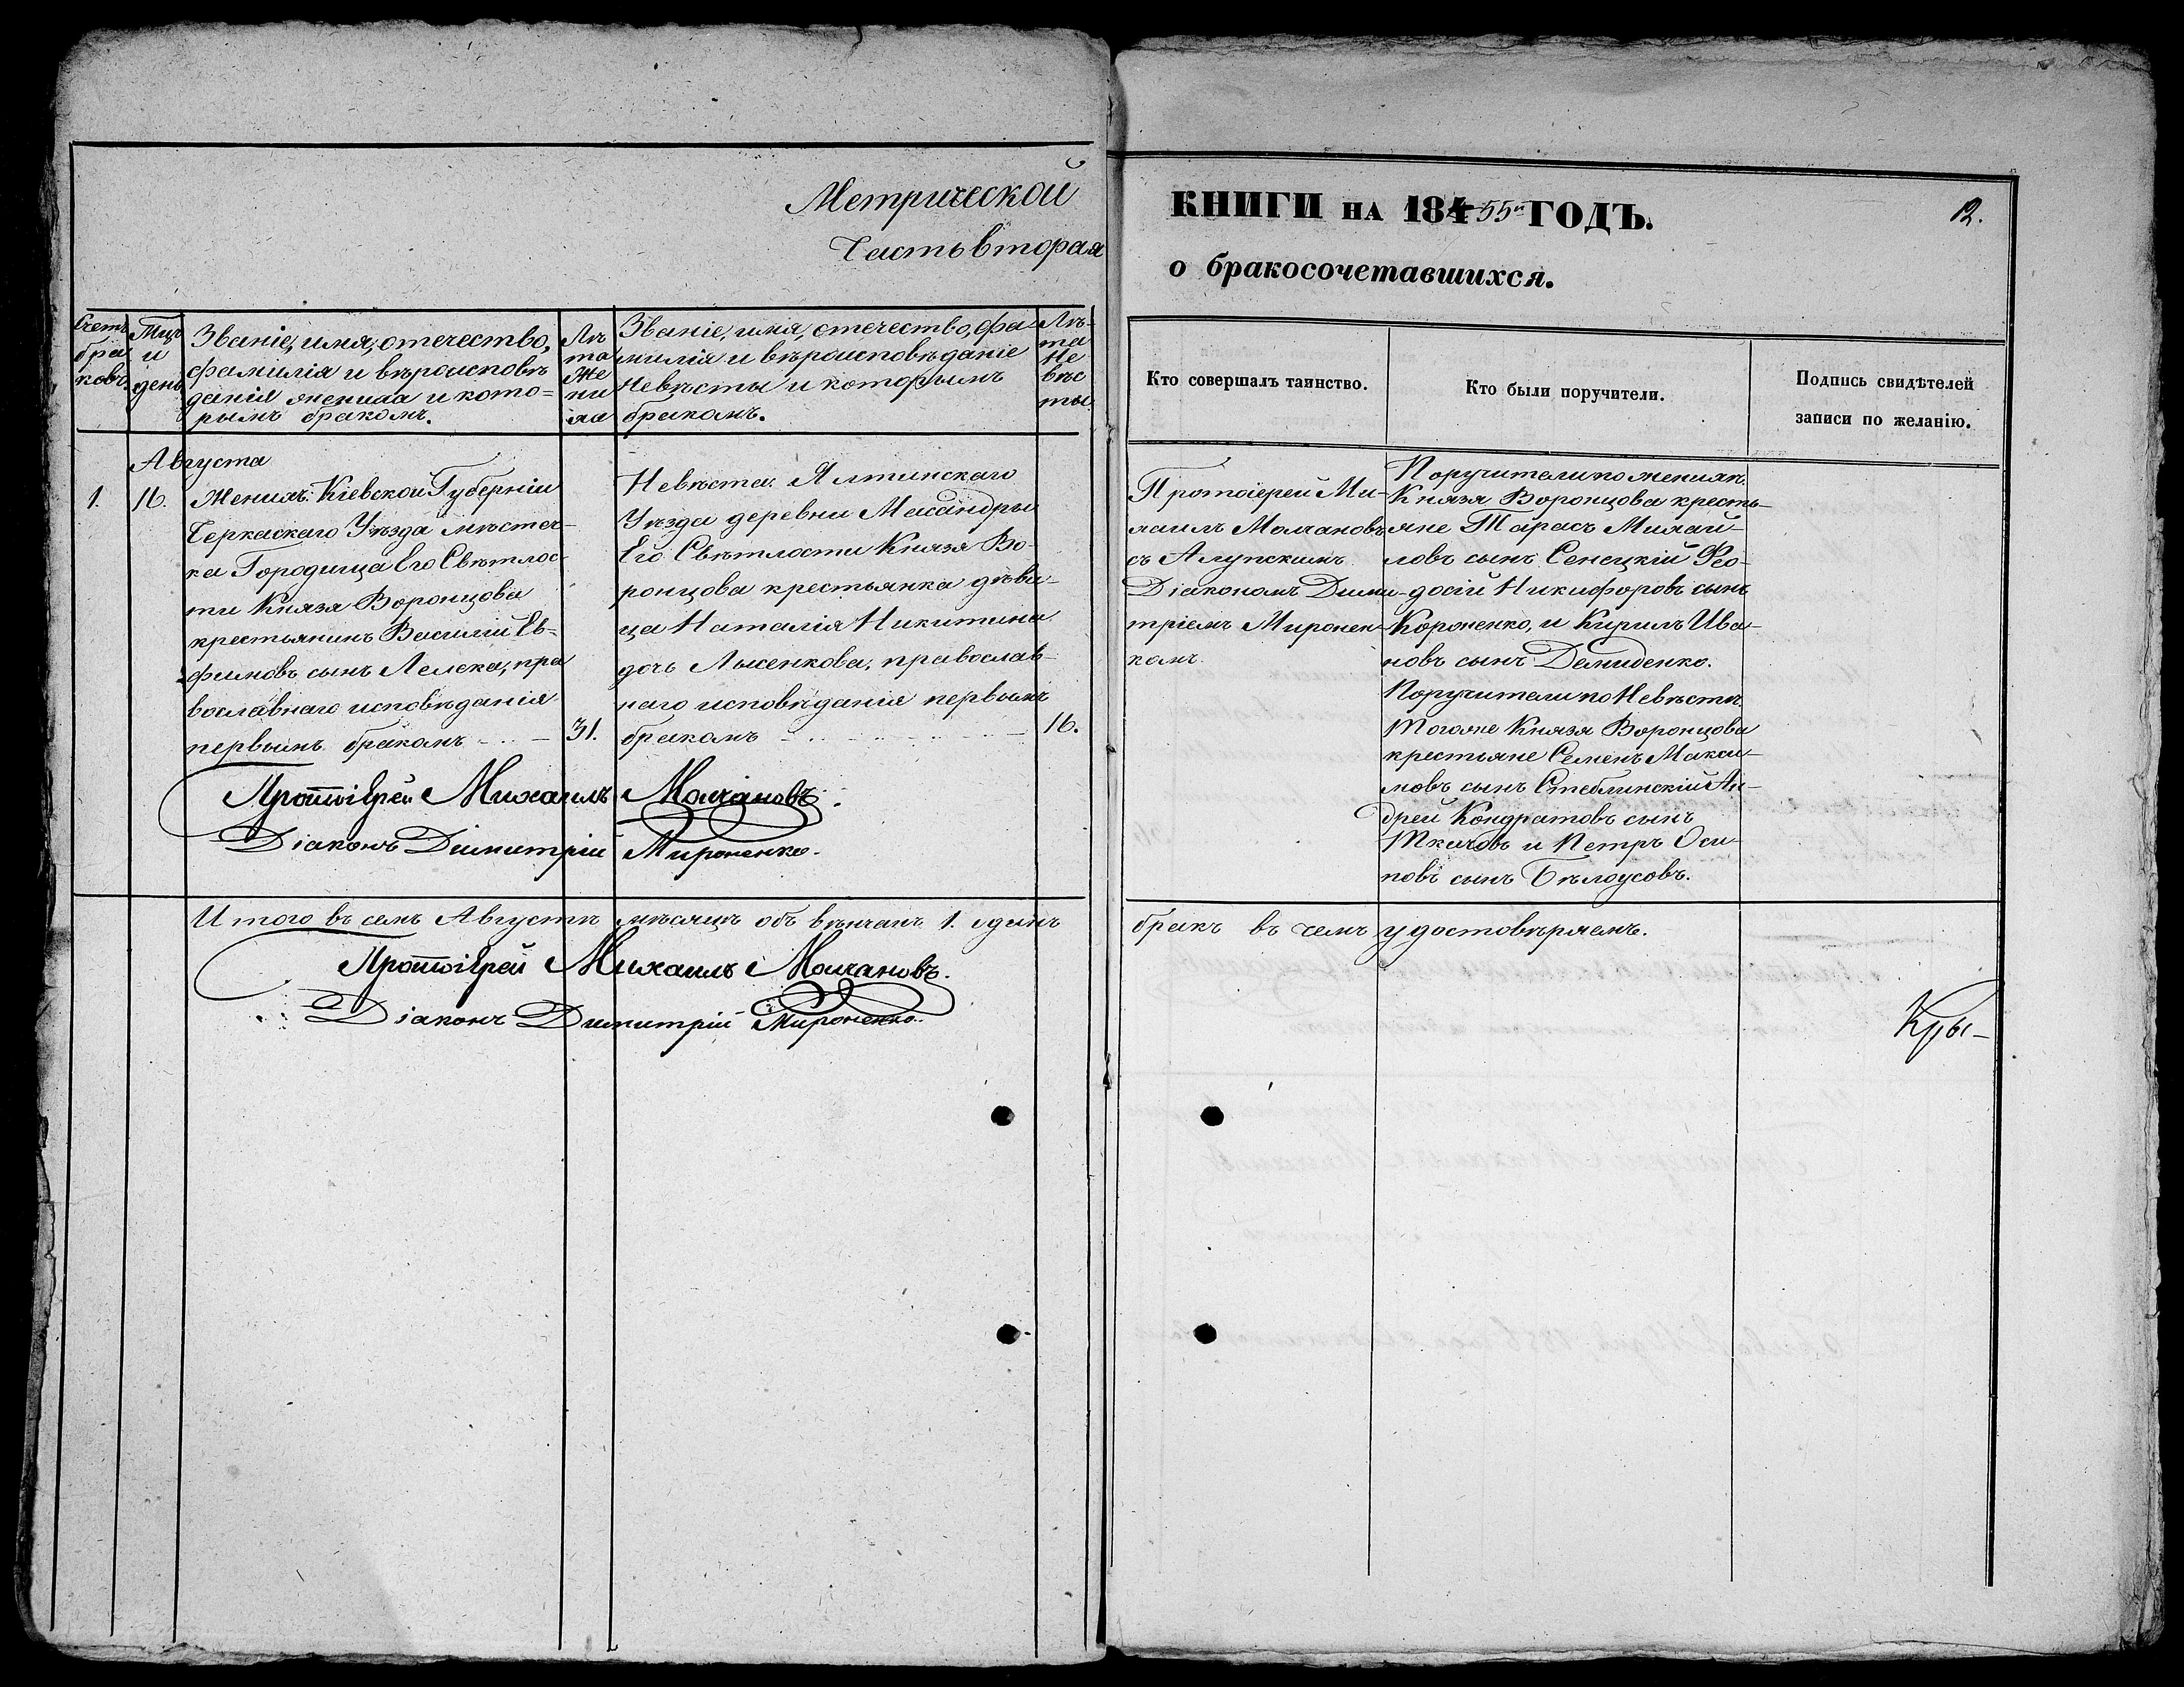 Метрической
Часть вторая
КНИГИ НА 184 55й ГОДЪ.
12.
о бракосочетавшихся.
Счетъ
бра
ковъ.
Мцъ
и
день
Званіе, имя, отечество,
фамилія и вѣроисповѣ
данія жениха и кото=
рымъ бракомъ.
Лѣ
та
Же
ни
ха
Званіе, имя, отечество, фа
милія и вѣроисповѣданіе
Невѣсты и которымъ
бракомъ.
Лѣ-
та
Не
вѣс
ты.
Кто совершалъ таинство.
Кто были поручители.
Подпись свидѣтелей
записи по желанію.
Августа
1.
16.
Женихъ: Кіевской Губерніи
Черкаскаго Уѣзда мѣстеч-
ка Городища Его Свѣтлос-
ти Князя Воронцова
крестьянинъ Василій Ев-
фимовъ сынъ Лелека, пра
вославнаго исповѣданія
первымъ бракомъ
31.
Невѣста: Ялтинскаго
Уѣзда деревни Масандры
Его Свѣтлости Князя Во-
ронцова крестьянка дѣви-
ца Наталія Никитина
дочь Лысенкова, православ-
наго исповѣданія первымъ
бракомъ
16.
Протоіерей Ми-
хаилъ Молчановъ
съ Алупскимъ
Діакономъ Дими-
тріемъ Миронен-
комъ.
Поручители по женихѣ
Князя Воронцова кресть-
яне Тарасъ Михай-
ловъ сынъ Сенецкій Фео-
досій Никифоровъ сынъ
Короненко, и Кирилъ Ива-
новъ сынъ Демиденко.
Поручители по Невѣстѣ
Тогоже Князя Воронцова
крестьяне Семенъ Макси-
мовъ сынъ Стеблинскій Ан-
дрей Кондратовъ сынъ
Ткачовъ и Петръ Оси-
повъ сынъ Бѣлоусовъ.
Протоіерей Михаилъ Молчановъ.
Діаконъ Димитрій Мироненко.
Итого въ семъ Августѣ мѣсяцѣ объ вѣнчанъ 1. одинъ
бракъ въ чемъ удостовѣряемъ.
Протоіерей Михаилъ Молчановъ.
Діаконъ Димитрій Мироненко.
Кры-